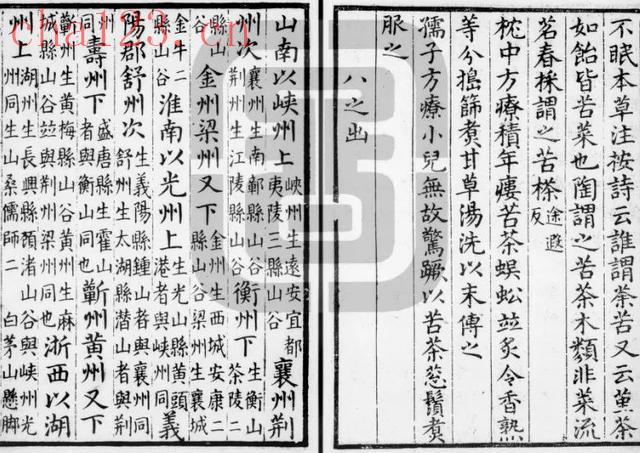 cha123.cn
不眠本草注按詩云誰謂荼苦又云菫荼
如飴皆苦菜也陶謂之苦茶木類非菜流
茗春採謂之苦𣘻途遐反
枕中方療積年瘻苦茶蜈蚣並炙令香熟
等分搗篩煑甘草湯洗以末傅之
孺子方療小兒無故驚蹶以苦茶葱鬚煑
服之
八之出
山南以峽州上峽州生遠安宜都夷陵三縣山谷襄州荆
州次襄州生南鄣縣山谷荆州生江陵縣山谷衡州下生衡山茶陵二
縣山谷金州梁州又下金州生西城安康二縣山谷梁州生襄城
金牛二縣山谷淮南以光州上生光山縣黄頭港者與峽州同義
陽郡舒州次生義陽縣鍾山者與襄州同舒州生太湖縣潛山者與荆
州同壽州下盛唐縣生霍山者與衡山同也蘄州黄州又下
蘄州生黄梅縣山谷黄州生麻城縣山谷竝與荆州梁州同也浙西以湖
州上湖州生長興縣顧渚山谷與峽州光州同生山桑儒師二白茅山懸脚